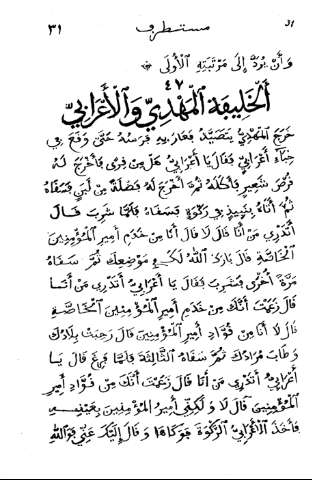 ٣١ مستطرف ٣١
وَأَنْ يُرَدَّ إِلَى مَرْتَبَتِهِ الْأُولَى
٤٧
اَلْخَلِيفَةُ الْمَهْدِيُّ وَالْأَعْرَابِيُّ
خَرَجَ الْمَهْدِيُّ يَتَصَيَّدُ فَغَارَ بِهِ فَرَسُهُ حَتَّى وَقَعَ فِي
خِبَاءِ أَعْرَابِيٍّ فَقَالَ يَا أَعْرَابِيُّ هَلْ مِنْ قِرًى فَأَخْرَجَ لَهُ
قُرْصَ شَعِيرٍ فَأَكَلَهُ ثُمَّ أَخْرَجَ لَهُ فَضْلَةً مِنْ لَبَنٍ فَسَقَاهُ
ثُمَّ أَتَاهُ بِنَبِيذٍ فِي رَكْوَةٍ فَسَقَاهُ فَلَمَّا شَرِبَ قَالَ
أَتَدْرِي مَنْ أَنَا قَالَ لَا قَالَ أَنَا مِنْ خَدَمِ أَمِيرِ الْمُؤْمِنِينَ
الْخَاصَّةِ قَالَ بَارَكَ اللهُ لَكَ فِي مَوْضِعِكَ ثُمَّ سَقَاهُ
مَرَّةً أُخْرَى فَشَرِبَ فَقَالَ يَا أَعْرَابِيُّ أَتَدْرِي مَنْ أَنَا
قَالَ زَعَمْتَ أَنَّكَ مِنْ خَدَمِ أَمِيرِ الْمُؤْمِنِينَ الْخَاصَّةِ
قَالَ لَا أَنَا مِنْ قُوَّادِ أَمِيرِ الْمُؤْمِنِينَ قَالَ رَحِبَتْ بِلَادُكَ
وَطَابَ مُرَادُكَ ثُمَّ سَقَاهُ الثَّالِثَةَ فَلَمَّا فَرَغَ قَالَ يَا
أَعْرَابِيُّ أَتَدْرِي مَنْ أَنَا قَالَ زَعَمْتَ أَنَّكَ مِنْ قُوَّادِ أَمِيرِ
الْمُؤْمِنِينَ قَالَ لَا وَلَكِنِّي أَمِيرُ الْمُؤْمِنِينَ بِعَيْنِهِ
فَأَخَذَ الْأَعْرَابِيُّ الرَّكْوَةَ فَوَكَأَهَا وَقَالَ إِلَيْكَ عَنِّي فَوَاللهِ